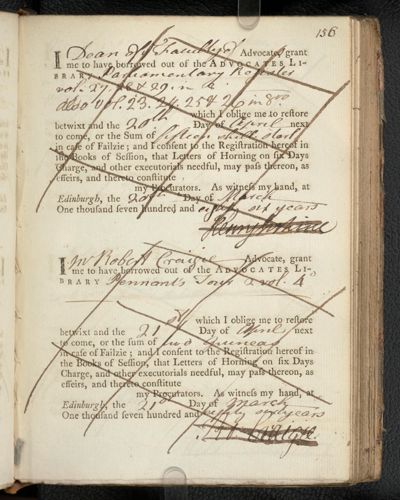 156
I Dean of Faculty Advocate, grant
me to have borrowed out of the ADVOCATES LI-
BRARY Parliamentary Register
vol. 27. 28 & 29. in
also vol. 23. 24. 25 & 26 in 8vo
which I oblige me to restore
betwixt and the 20th Day of April next
to come, or the Sum of
in case of Failzie; and I consent to the Registration hereof in
the Books of Session, that Letters of Horning on six Days
Charge, and other executorials needful, may pass thereon, as
effeirs, and thereto constitute
my Procurators. As witness my hand, at
Edinburgh, the 20th Day of March
One thousand seven hundred and eighty six years
Henry Erskine
I Mr Robert Craigie Advocate, grant
me to have borrowed out of the ADVOCATES LI-
BRARY Pennants Tour 2 vol. 4o
which I oblige me to restore
betwixt and the 21 Day of April next
to come, or the sum of two Guineas
in case of Failzie; and I consent to the Registration hereof in
the Books of Session, that Letters of Horning on six Days
Charge, and other executorials needful, may pass thereon, as
effeirs, and thereto constitute
my Procurators. As witness my hand, at
Edinburgh, the 21st Day of March
One thousand seven hundred and eighty six years
Craigie